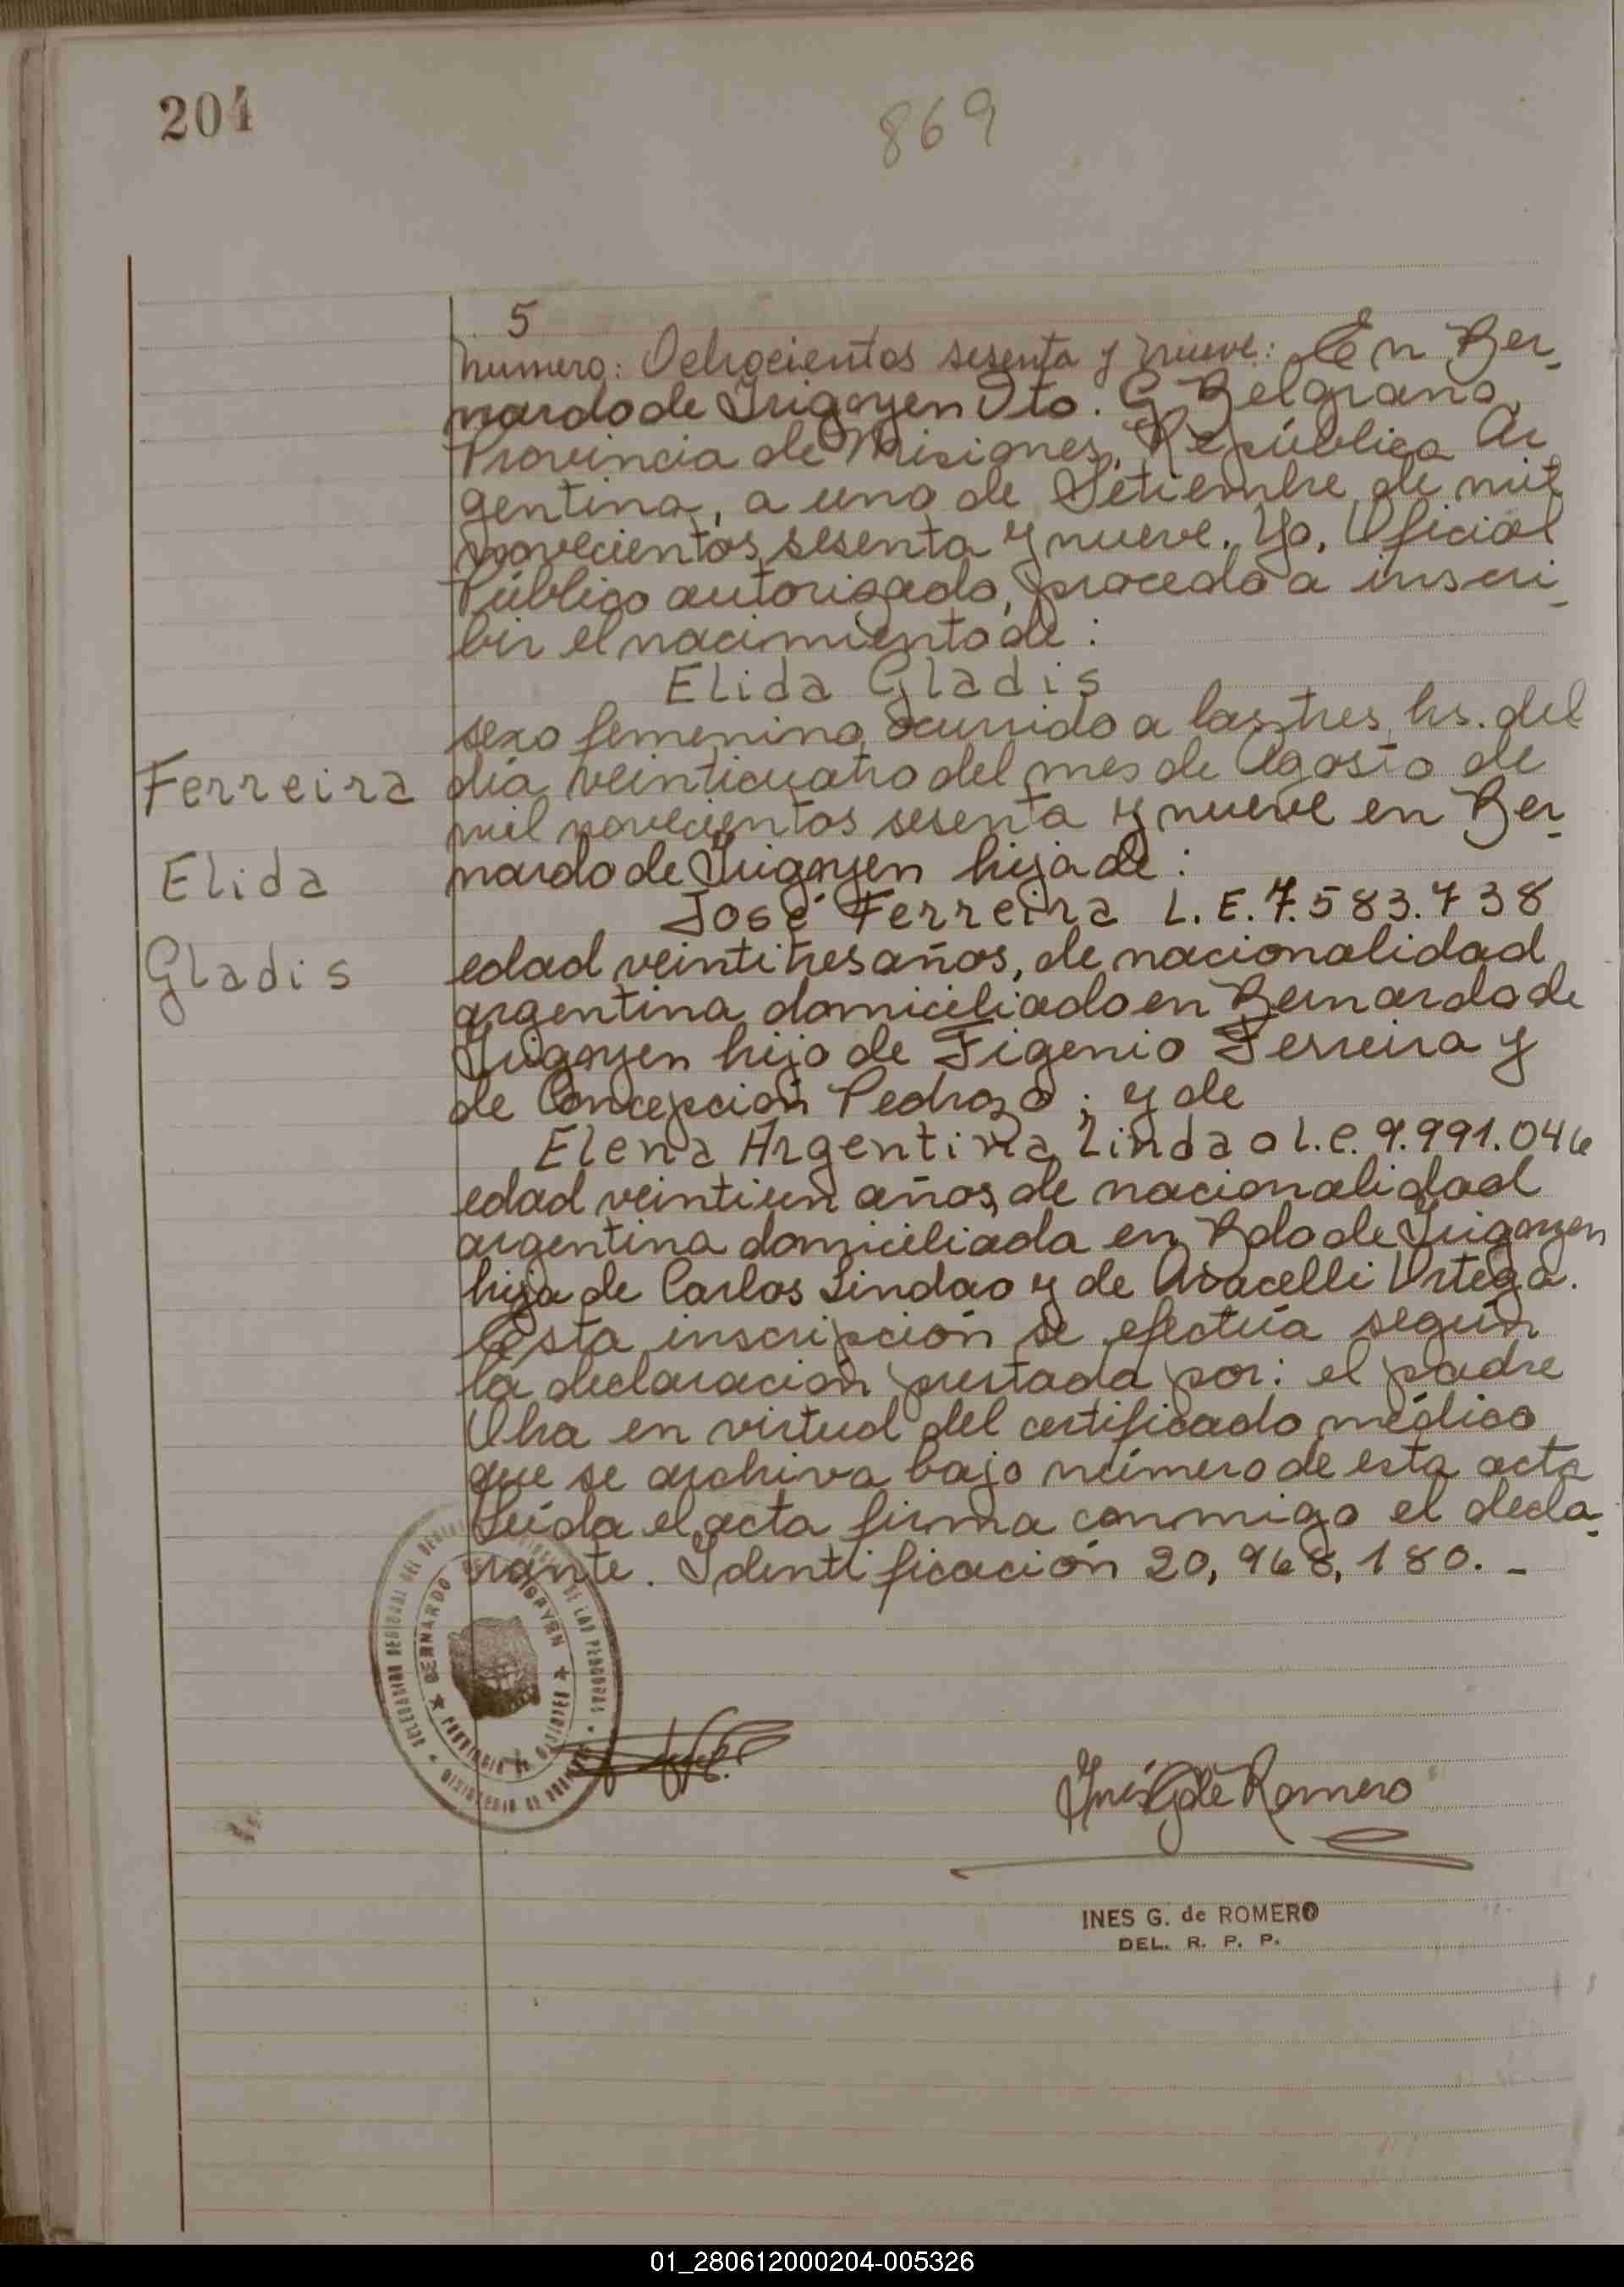 204
869
5
numero: Ochocientos sesenta y nueve: En Ber-
nardo de Irigoyen Dto. G Belgrano,
Provincia de Misiones, República Ar
gentina, a uno de Setiembre de mil
novecientos sesenta y nueve. Yo, Oficial
Público autorizado, procedo a inscri-
bir el nacimiento de:
Elida Gladis
sexo femenino, ocurrido a las tres hs. del
día veinticuatro del mes de Agosto de
mil novecientos sesenta y nueve en Ber-
nardo de Irigoyen hija de:
José Ferreira L.E. 7.583.738
edad veintitres años, de nacionalidad
argentina domiciliado en Bernardo de
Irigoyen hijo de Figenio Ferreira y
de Concepción Pedrozo; y de
Elena Argentina Lindao L.C. 9.991.046
edad veintiun años, de nacionalidad
argentina domiciliada en Bdo de Irigoyen
hija de Carlos Lindao y de Aracelli Ortega.
Esta inscripción se efectúa según
la declaración prestada por: el padre
Otra en virtud del certificado médico
que se archiva bajo número de esta acta
Leída el acta firma conmigo el decla-
rante. Identificación 20,968,180.-
Ferreira
Elida
Gladis
BERNARDO
Inés G de Romero
INES G. de ROMERO
DEL. R. P. P.
01_280612000204-005326